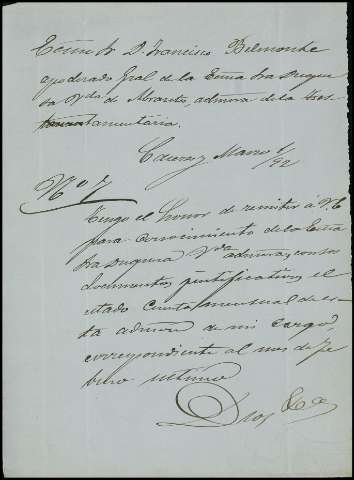 Excmo Sr D. Francisco Belmonte
apoderado Gral de la Excma Sra Duque
sa Vda de Abrantes, admora de la Tes-
tamentaria.
Caceres y Marzo 1/92
No 7
Tengo el honor de remitir á V.E
para conocimiento de la Excma
Sra Duquesa Vda admora, con los
documentos justificativos el
estado cuenta mensual de es-
ta admon de mi cargo,
correspondiente al mes de Fe
brero ultimo
Dios &a